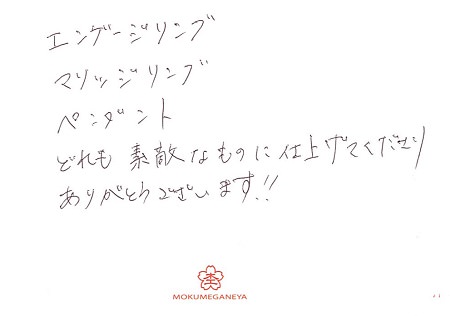 エンゲージリング
マリッジリング
ペンダント
どれも素敵なものに仕上げてくださり
ありがとうございます!!
MOKUMEGANEYA